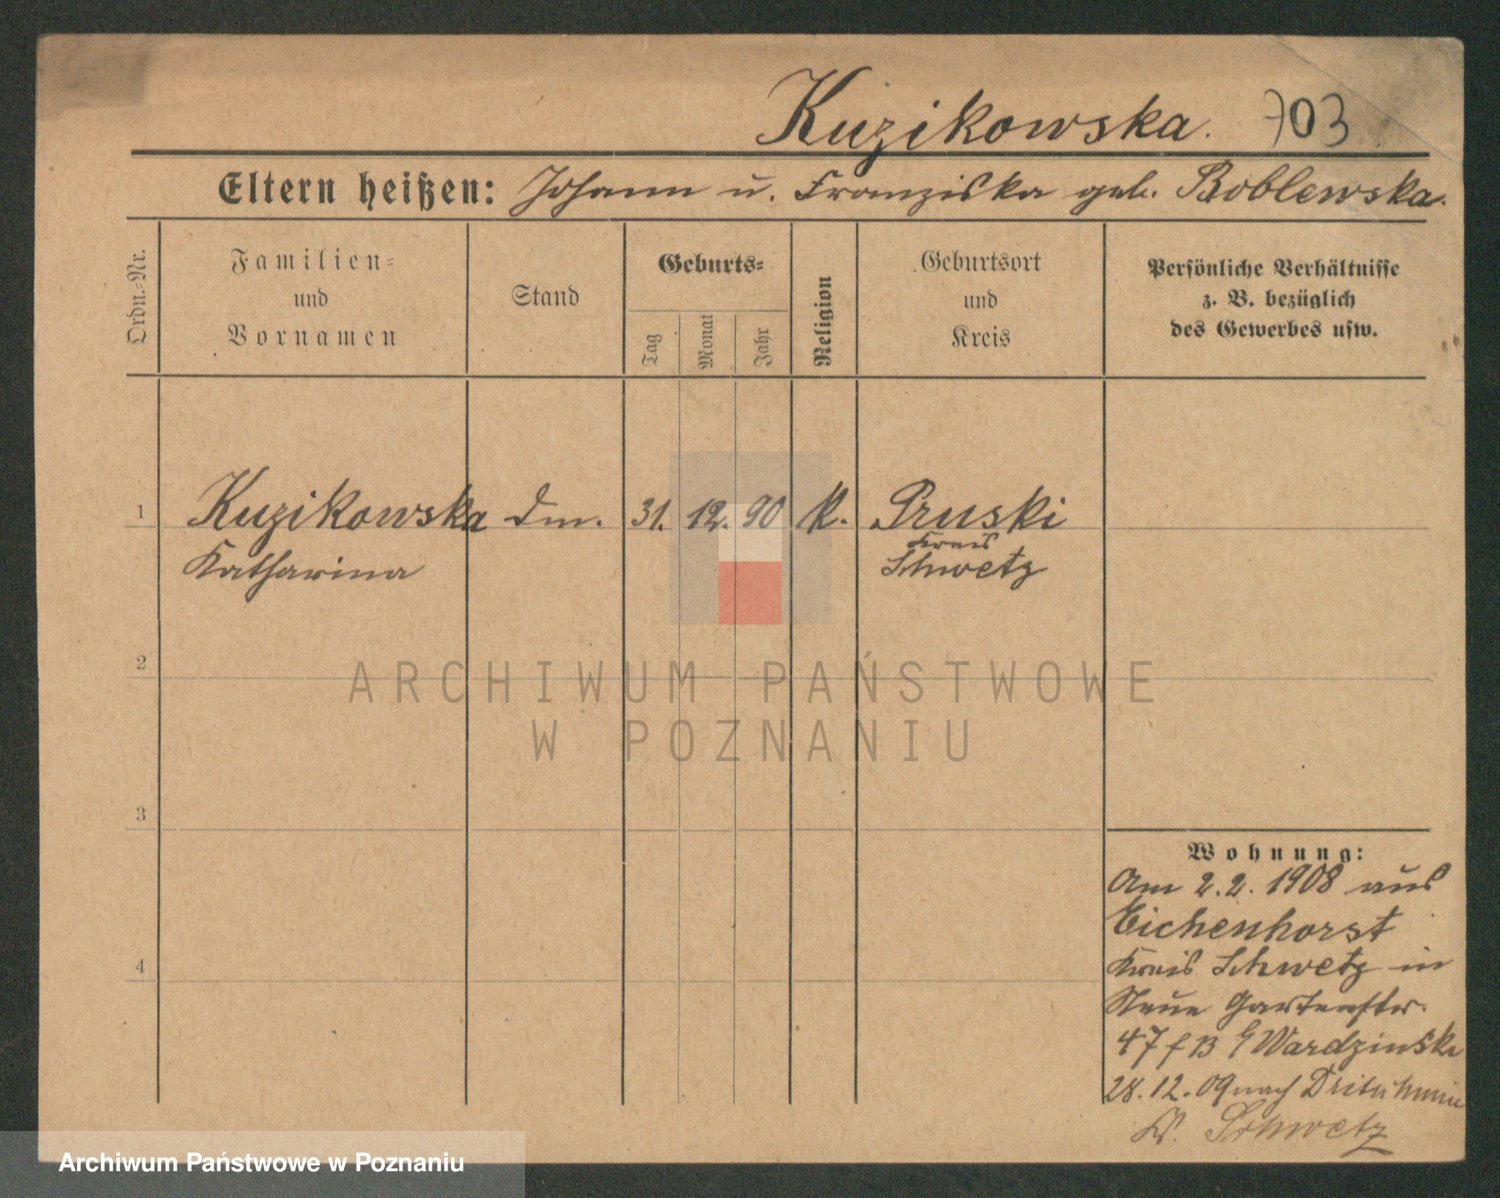 Kuzikowska. 703
Eltern heißen: Johann u. Franziska geb. Boblewska.
Ordn.-Nr.
Familien-
und
Vornamen
Stand
Geburts-
Tag
Monat
Jahr
Religion
Geburtsort
und
Kreis
Persönliche Verhältnisse
z. B. bezüglich
des Gewerbes usw.
1 Kuzikowska Dm. 31. 12. 90 K. Pruski
Kreis
Katharina Schwetz
2
ARCHIWUM PAŃSTWOWE
W POZNANIU
3
Wohnung:
Am 2.2. 1908 aus
Eichenhorst
4
Kreis Schwetz in
Neue Gartenstr.
47 Wardzinska
28.12.09 nach
Kr. Schwetz
Archiwum Państwowe w Poznaniu